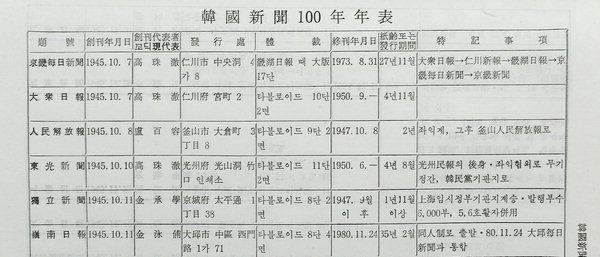 韓國新聞100年年表
題號 創刊年月日 創刊代表者 發行處 體裁 終刊年月日 紙齡또는 特記事項
發行期間
京畿每日新聞 1945.10. 7 高珠澈 仁川市 中央洞 4 畿湖日報 때 大版 1973. 8.31 27년11월 大衆日報→仁川新報→畿湖日報→京
가 8 17단 畿每日新聞→京畿新聞
大衆日報 1945.10. 7 高珠澈 仁川府 宮町 2 타블로이드 10단 1950. 9.— 4년11월
2면
人民解放報 1945.10. 8 盧百容 釜山市 大倉町 3 타블로이드 9단 2 1947.10. 8 2년 좌익계, 그후 釜山人民解放報로
丁目 8 면
東光新聞 1945.10.10 高珠澈 光州府 光山洞 竹 타블로이드 11단 1950. 6.— 4년 8월 光州民報의 後身·좌익혐의로 무기
口 인쇄소 2면 정간, 韓民黨기관지로
獨立新聞 1945.10.11 金承學 京城府 太平通 1 타블로이드 8단 2 1947. 9월 1년11월 上海임시정부기관지계승·발행부수
丁目 38 면 이후 이상 6,000부, 5,6호활자併用
嶺南日報 1945.10.11 金泳甫 大邱市 中區 西門 타블로이드 8단 4 1980.11.24 35년 2월 同人制로 출발·80.11.24 大邱每日
路 1가 71 면 新聞과 통합
韓國新聞